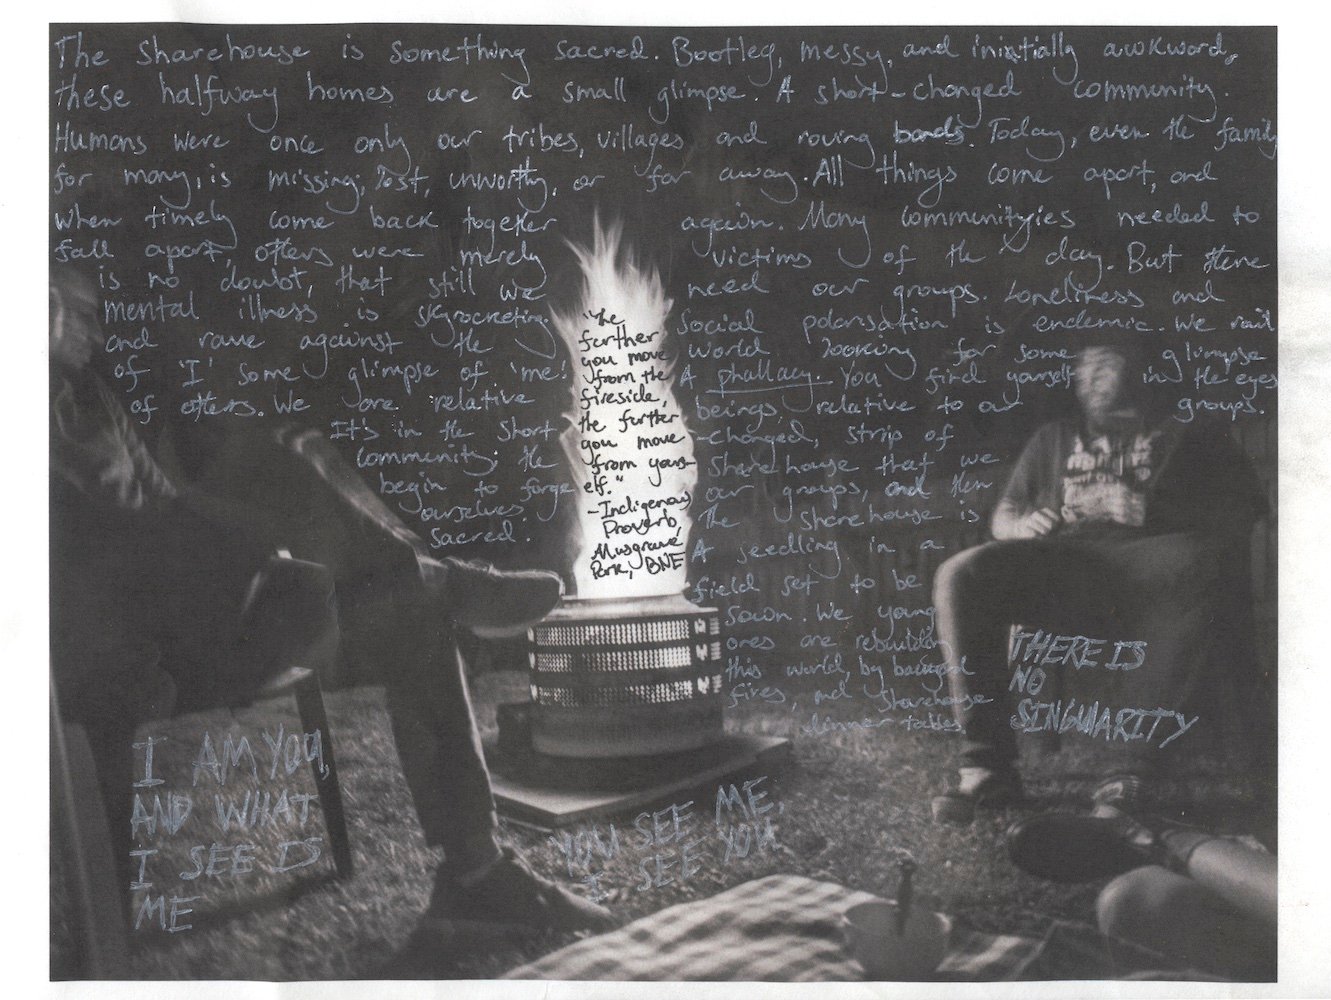 The sharehouse is something sacred. Bootleg, messy, and inintially awkward,
these halfway homes are a small glimpse. A short-changed community.
Humans were once only our tribes, villages and roving bands. Today, even the family
for many, is missing, lost, unworthy, or far away. All things come apart, and
when timely come back together again. Many communityies needed to
fall apart, others were merely victims of the day. But there
is no doubt, that still we need our groups. Loneliness and
mental illness is skyrocketing. Social polarisation is endemic. We rail
and rave against the world looking for some glimpse
of 'I' some glimpse of 'me'. A phallacy. You find yourself in the eyes
of others. We are relative beings, relative to our groups.
It's in the short-changed, strip of
community, the sharehouse that we
begin to forge our groups, and then
ourselves. The sharehouse is
sacred. A seedling in a
field set to be
sown. We young
ones are rebuilding
this world, by backyard
fires, and sharehouse
dinner tables.
"The
further
you move
from the
fireside,
the further
you move
from yours-
elf."
-Indigenous
Proverb,
Musgrave
Park, BNE
THERE IS
NO
SINGULARITY
I AM YOU,
AND WHAT
I SEE IS
ME
YOU SEE ME,
I SEE YOU